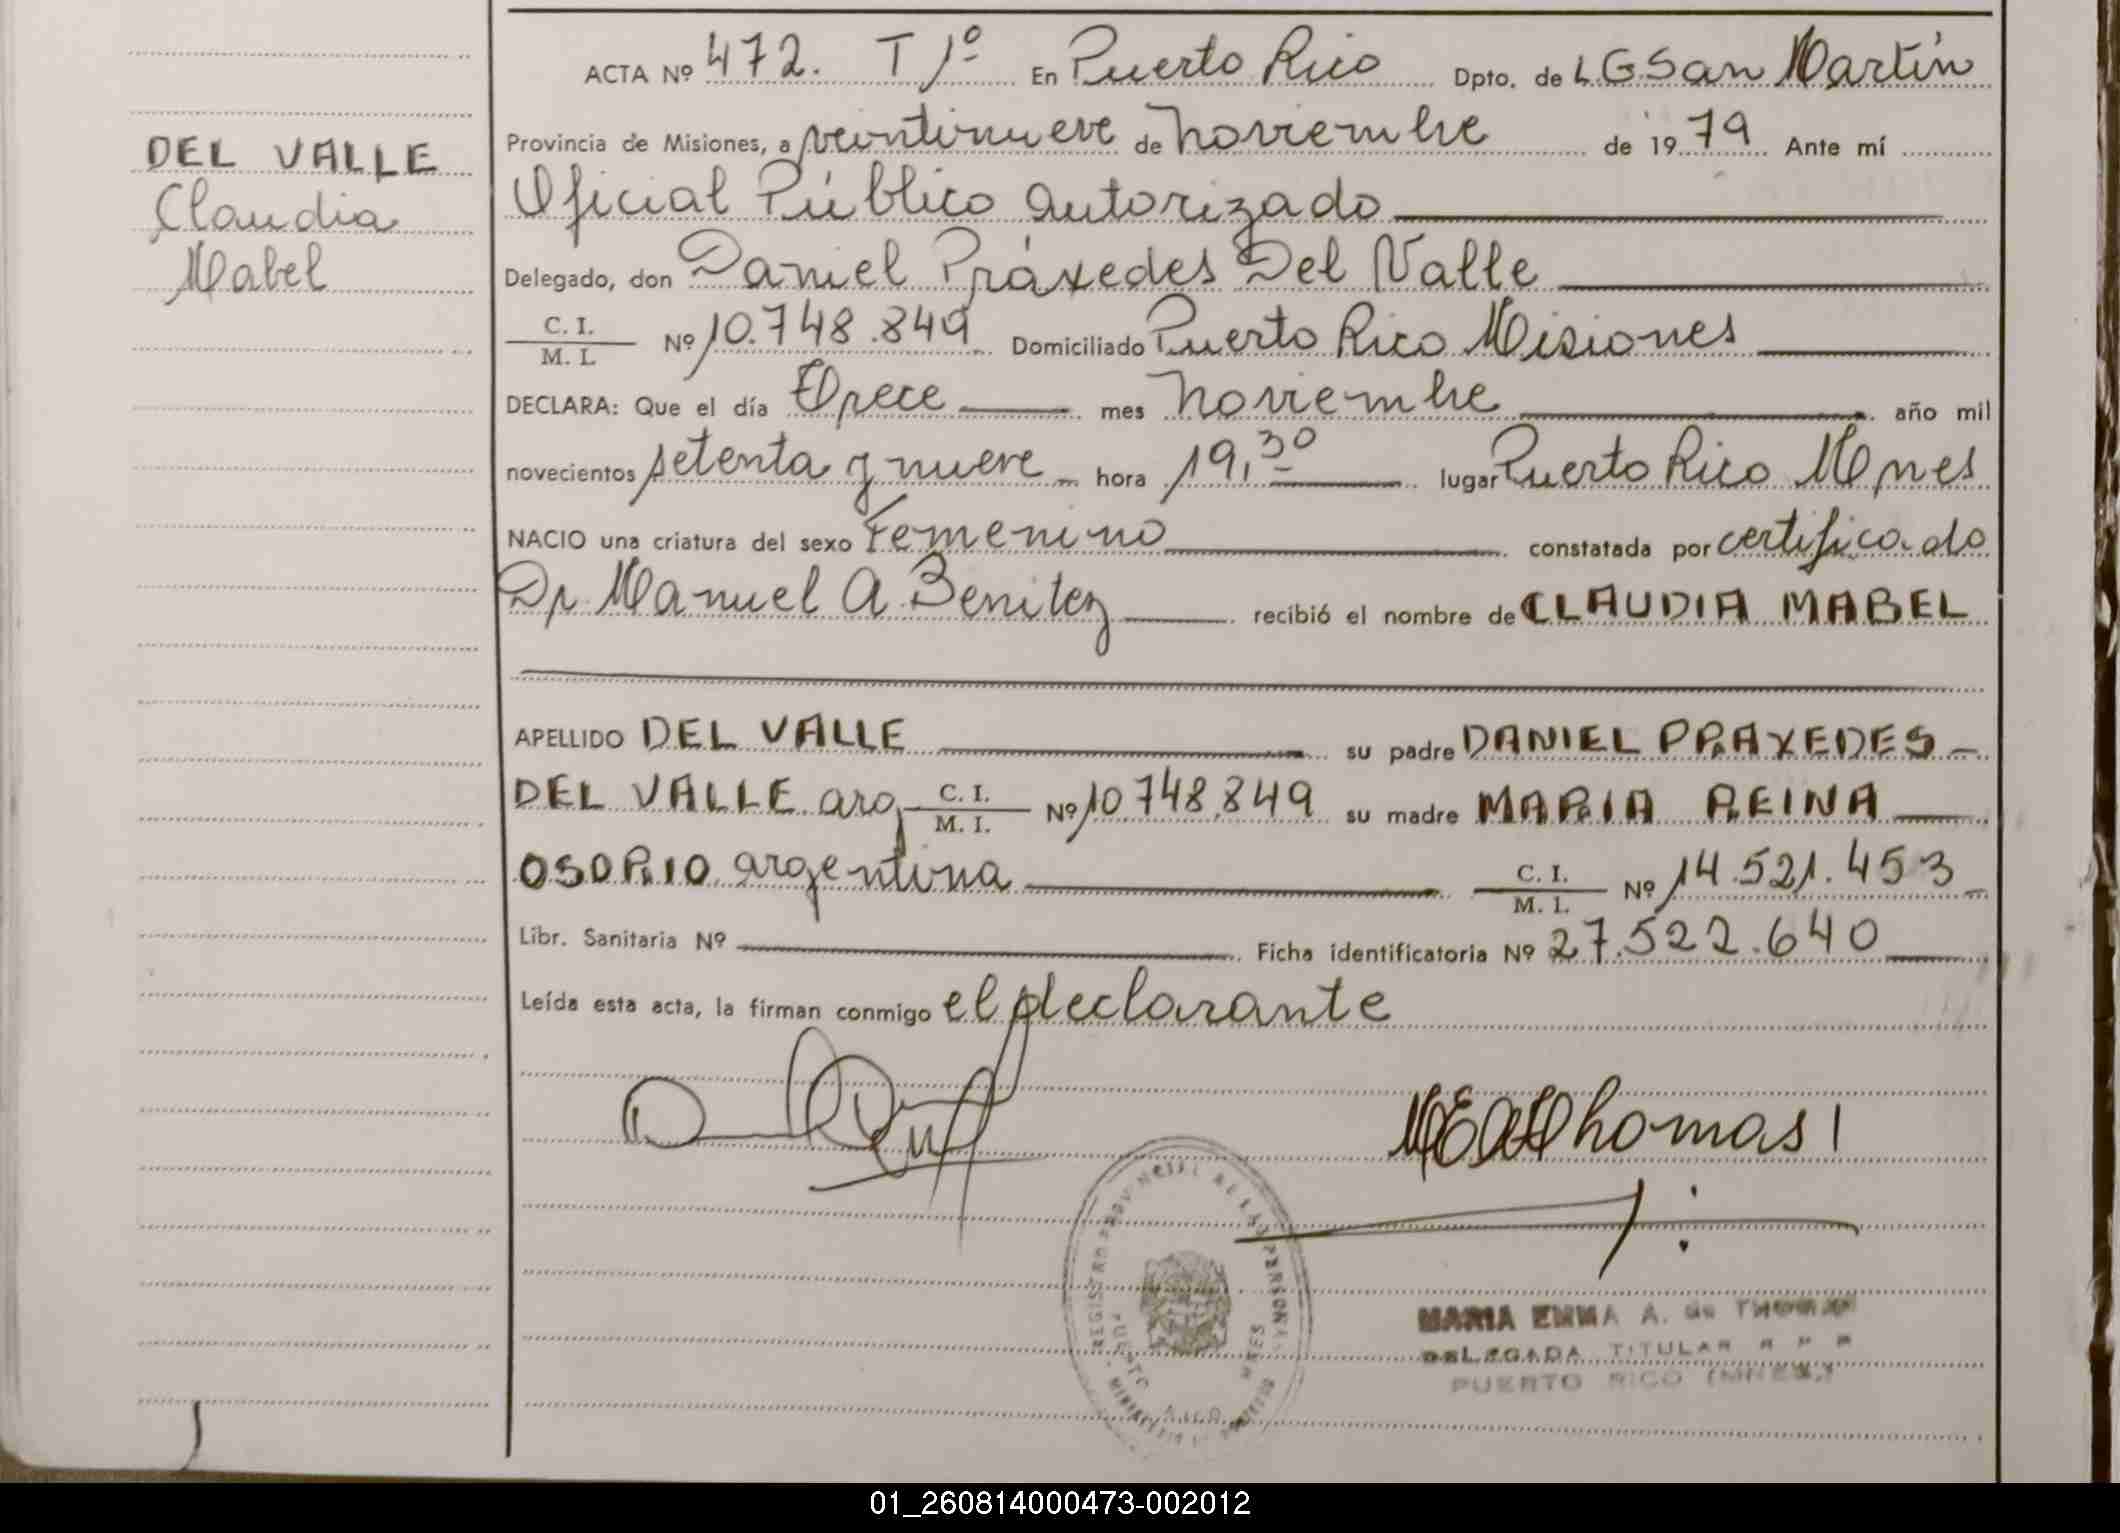 DEL VALLE
Claudia
Mabel
ACTA Nº 472. T 1º En Puerto Rico Dpto. de L.G.San Martín
Provincia de Misiones, a veintinueve de noviembre de 1979 Ante mí
Oficial Público autorizado
Delegado, don Daniel Práxedes Del Valle
C. I.
M. I. Nº 10.748.849 Domiciliado Puerto Rico Misiones
DECLARA: Que el día Trece mes noviembre año mil
novecientos setenta y nueve hora 19,30 lugar Puerto Rico Mnes
NACIO una criatura del sexo Femenino constatada por certificado
Dr Manuel A. Benitez recibió el nombre de CLAUDIA MABEL
APELLIDO DEL VALLE su padre DANIEL PRAXEDES
DEL VALLE arg C. I. M. I. Nº 10.748.849 su madre MARIA REINA
OSORIO argentina C. I. M. I. Nº 14.521.453
Libr. Sanitaria Nº Ficha identificatoria Nº 27.522.640
Leída esta acta, la firman conmigo el declarante
MEAThomas
REGISTRO PROVINCIAL DE LAS PERSONAS
PUERTO RICO MNES
MARIA EMMA A. de THOMAS
DELEGADA TITULAR R P P
PUERTO RICO (MNES.)
01_260814000473-002012